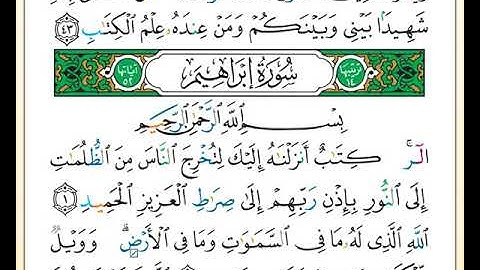 شَهِيدًۢا بَيْنِي وَبَيْنَكُمْ وَمَنْ عِندَهُۥ عِلْمُ ٱلْكِتَٰبِ ٤٣
ترتيبها ١٤ سُورَةُ إِبْرَاهِيم آياتها ٥٢
بِسْمِ ٱللَّهِ ٱلرَّحْمَٰنِ ٱلرَّحِيمِ
الٓر ۚ كِتَٰبٌ أَنزَلْنَٰهُ إِلَيْكَ لِتُخْرِجَ ٱلنَّاسَ مِنَ ٱلظُّلُمَٰتِ
إِلَى ٱلنُّورِ بِإِذْنِ رَبِّهِمْ إِلَىٰ صِرَٰطِ ٱلْعَزِيزِ ٱلْحَمِيدِ ١
ٱللَّهِ ٱلَّذِي لَهُۥ مَا فِي ٱلسَّمَٰوَٰتِ وَمَا فِي ٱلْأَرْضِ ۗ وَوَيْلٌ